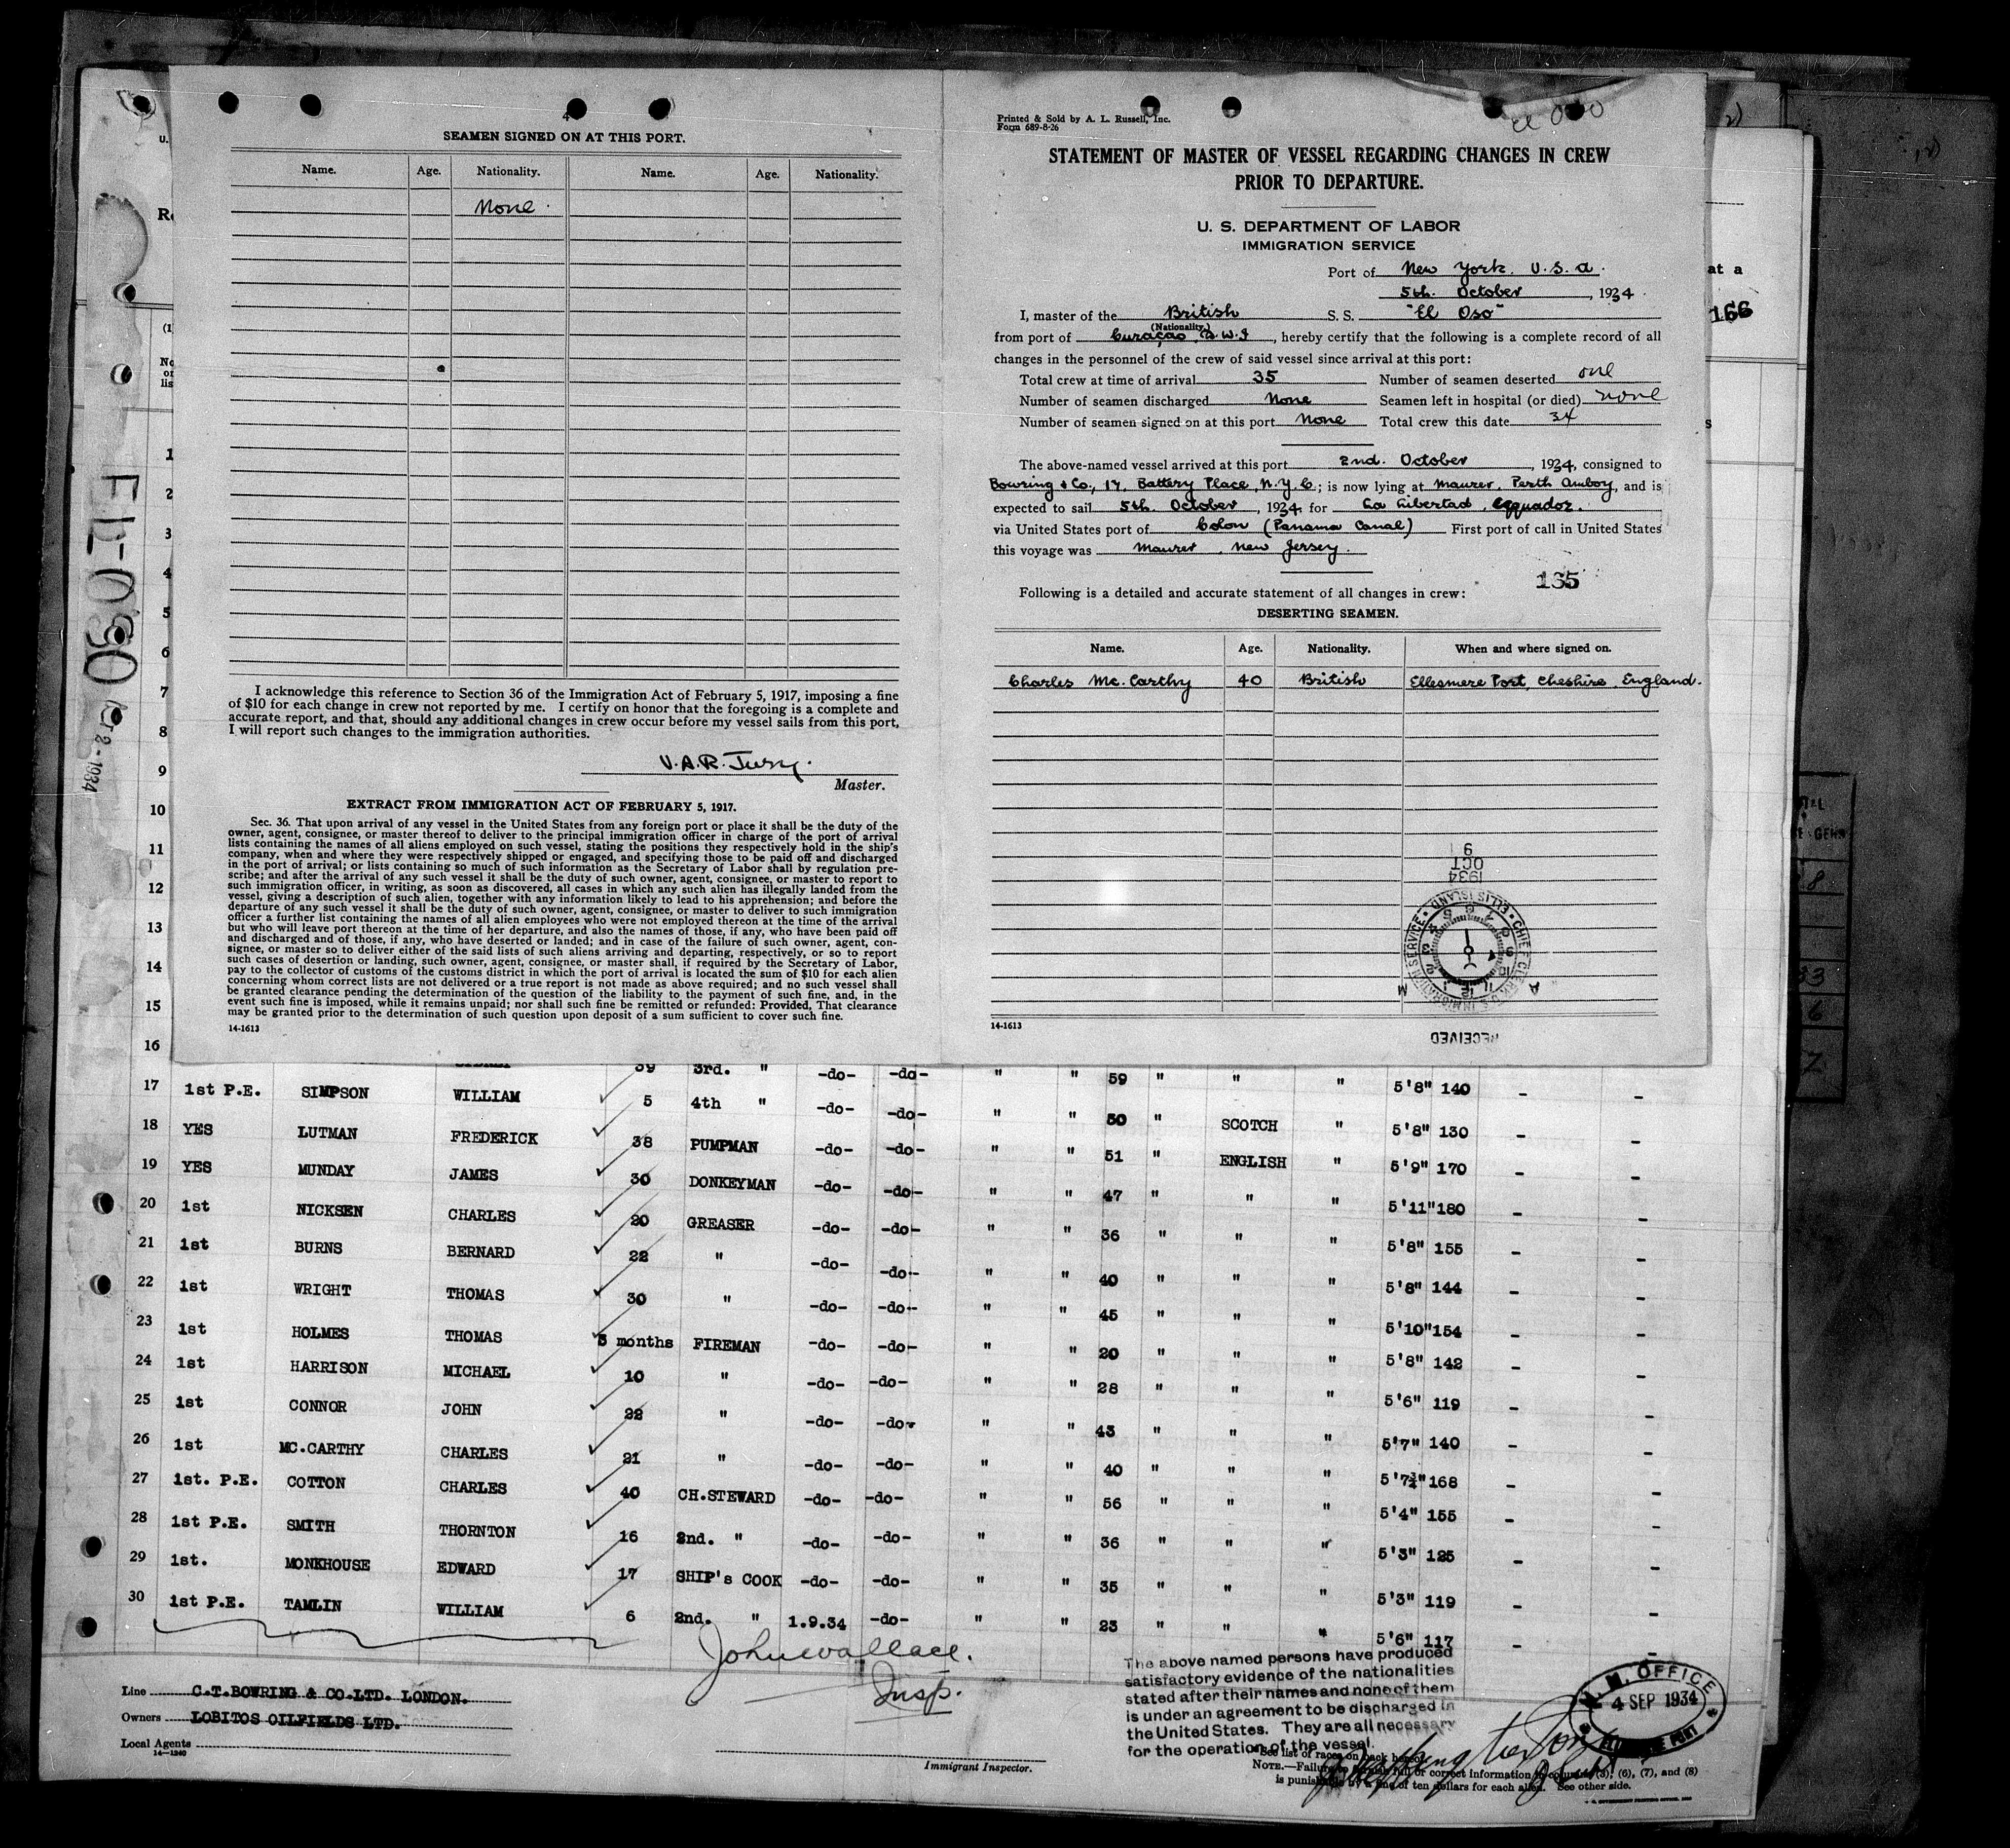 4
SEAMEN SIGNED ON AT THIS PORT.
Name. Age. Nationality. Name. Age. Nationality.
None.
I acknowledge this reference to Section 36 of the Immigration Act of February 5, 1917, imposing a fine
of $10 for each change in crew not reported by me. I certify on honor that the foregoing is a complete and
accurate report, and that, should any additional changes in crew occur before my vessel sails from this port,
I will report such changes to the immigration authorities.
V.A.R. Jury.
Master.
EXTRACT FROM IMMIGRATION ACT OF FEBRUARY 5, 1917.
Sec. 36. That upon arrival of any vessel in the United States from any foreign port or place it shall be the duty of the
owner, agent, consignee, or master thereof to deliver to the principal immigration officer in charge of the port of arrival
lists containing the names of all aliens employed on such vessel, stating the positions they respectively hold in the ship's
company, when and where they were respectively shipped or engaged, and specifying those to be paid off and discharged
in the port of arrival; or lists containing so much of such information as the Secretary of Labor shall by regulation pre-
scribe; and after the arrival of any such vessel it shall be the duty of such owner, agent, consignee, or master to report to
such immigration officer, in writing, as soon as discovered, all cases in which any such alien has illegally landed from the
vessel, giving a description of such alien, together with any information likely to lead to his apprehension; and before the
departure of any such vessel it shall be the duty of such owner, agent, consignee, or master to deliver to such immigration
officer a further list containing the names of all alien employees who were not employed thereon at the time of the arrival
but who will leave port thereon at the time of her departure, and also the names of those, if any, who have been paid off
and discharged and of those, if any, who have deserted or landed; and in case of the failure of such owner, agent, con-
signee, or master so to deliver either of the said lists of such aliens arriving and departing, respectively, or so to report
such cases of desertion or landing, such owner, agent, consignee, or master shall, if required by the Secretary of Labor,
pay to the collector of customs of the customs district in which the port of arrival is located the sum of $10 for each alien
concerning whom correct lists are not delivered or a true report is not made as above required; and no such vessel shall
be granted clearance pending the determination of the question of the liability to the payment of such fine, and, in the
event such fine is imposed, while it remains unpaid; nor shall such fine be remitted or refunded: Provided, That clearance
may be granted prior to the determination of such question upon deposit of a sum sufficient to cover such fine.
14-1613
Printed & Sold by A. L. Russell, Inc.
Form 689-8-26
STATEMENT OF MASTER OF VESSEL REGARDING CHANGES IN CREW
PRIOR TO DEPARTURE.
U. S. DEPARTMENT OF LABOR
IMMIGRATION SERVICE
Port of New York. U.S.A.
5th. October, 1934.
I, master of the British S. S. "El Oso"
(Nationality.)
from port of Curaçao D.W.I, hereby certify that the following is a complete record of all
changes in the personnel of the crew of said vessel since arrival at this port:
Total crew at time of arrival 35 Number of seamen deserted one
Number of seamen discharged None Seamen left in hospital (or died) none
Number of seamen signed on at this port None Total crew this date 34
The above-named vessel arrived at this port 2nd. October, 1934, consigned to
Bowring & Co., 17, Battery Place, N.Y.C; is now lying at Maurer, Perth Amboy, and is
expected to sail 5th. October, 1934, for La Libertad, Equador.
via United States port of Colon (Panama Canal) First port of call in United States
this voyage was Maurer, New Jersey.
135
Following is a detailed and accurate statement of all changes in crew:
DESERTING SEAMEN.
Name. Age. Nationality. When and where signed on.
Charles Mc.Carthy 40 British Ellesmere Port, Cheshire, England.
1934
OCT
9
CHIEF CLERK U.S. IMMIGRATION SERVICE • ELLIS ISLAND
A M
RECEIVED
14-1613
at a
166
OCT 2-1934
1
2
3
4
5
6
7
8
9
10
11
12
13
14
15
16
39 3rd. " -do- -do- " " 59 " " " 5'8" 140 - -
17 1st P.E. SIMPSON WILLIAM 5 4th " -do- -do- " " 50 " SCOTCH " 5'8" 130 - -
18 YES LUTMAN FREDERICK 38 PUMPMAN -do- -do- " " 51 " ENGLISH " 5'9" 170 - -
19 YES MUNDAY JAMES 30 DONKEYMAN -do- -do- " " 47 " " " 5'11" 180 - -
20 1st NICKSEN CHARLES 20 GREASER -do- -do- " " 36 " " " 5'8" 155 - -
21 1st BURNS BERNARD 22 " -do- -do- " " 40 " " " 5'8" 144 - -
22 1st WRIGHT THOMAS 30 " -do- -do- " " 45 " " " 5'10" 154 - -
23 1st HOLMES THOMAS 5 months FIREMAN -do- -do- " " 20 " " " 5'8" 142 - -
24 1st HARRISON MICHAEL 10 " -do- -do- " " 28 " " " 5'6" 119 - -
25 1st CONNOR JOHN 22 " -do- -do- " " 43 " " " 5'7" 140 - -
26 1st MC.CARTHY CHARLES 21 " -do- -do- " " 40 " " " 5'7¾" 168 - -
27 1st. P.E. COTTON CHARLES 40 CH.STEWARD -do- -do- " " 56 " " " 5'4" 155 - -
28 1st P.E. SMITH THORNTON 16 2nd. " -do- -do- " " 36 " " " 5'3" 125 - -
29 1st. MONKHOUSE EDWARD 17 SHIP's COOK -do- -do- " " 35 " " " 5'3" 119 - -
30 1st P.E. TAMLIN WILLIAM 6 2nd. " 1.9.34 -do- " " 23 " " " 5'6" 117 - -
John Wallace.
Insp.
Immigrant Inspector.
Line C.T.BOWRING & CO.LTD. LONDON.
Owners LOBITOS OILFIELDS LTD.
Local Agents
14-1240
The above named persons have produced
satisfactory evidence of the nationalities
stated after their names and none of them
is under an agreement to be discharged in
the United States. They are all necessary
for the operation of the vessel.
M. M. OFFICE
4 SEP 1934
PORT
*See list of races on back hereof.
NOTE.—Failure to full or correct information to columns (3), (6), (7), and (8)
is punishable by a fine of ten dollars for each alien. See other side.